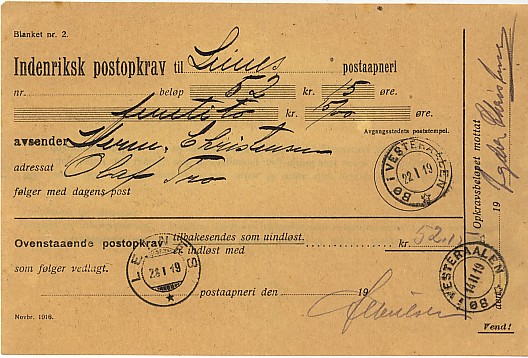 Blanket nr. 2.
Indenriksk postopkrav til Leines postaapneri
nr. beløp 52 kr. 15 øre.
femtito kr. 15/100 øre.
Avgangsstedets poststempel.
avsender Herm. Christensen
adressat Olaf Tro
følger med dagens post
BØ I VESTERAALEN
22 I 19
Ovenstaaende postopkrav tilbakesendes som uindløst.
er indløst med kr. 52.15
som følger vedlagt.
LEINES
28 I 19
postaapneri den 19
Novbr. 1916.
Opkrævsbeløpet mottat
den 19
BØ I VESTERAALEN
14 II 19
Vend!